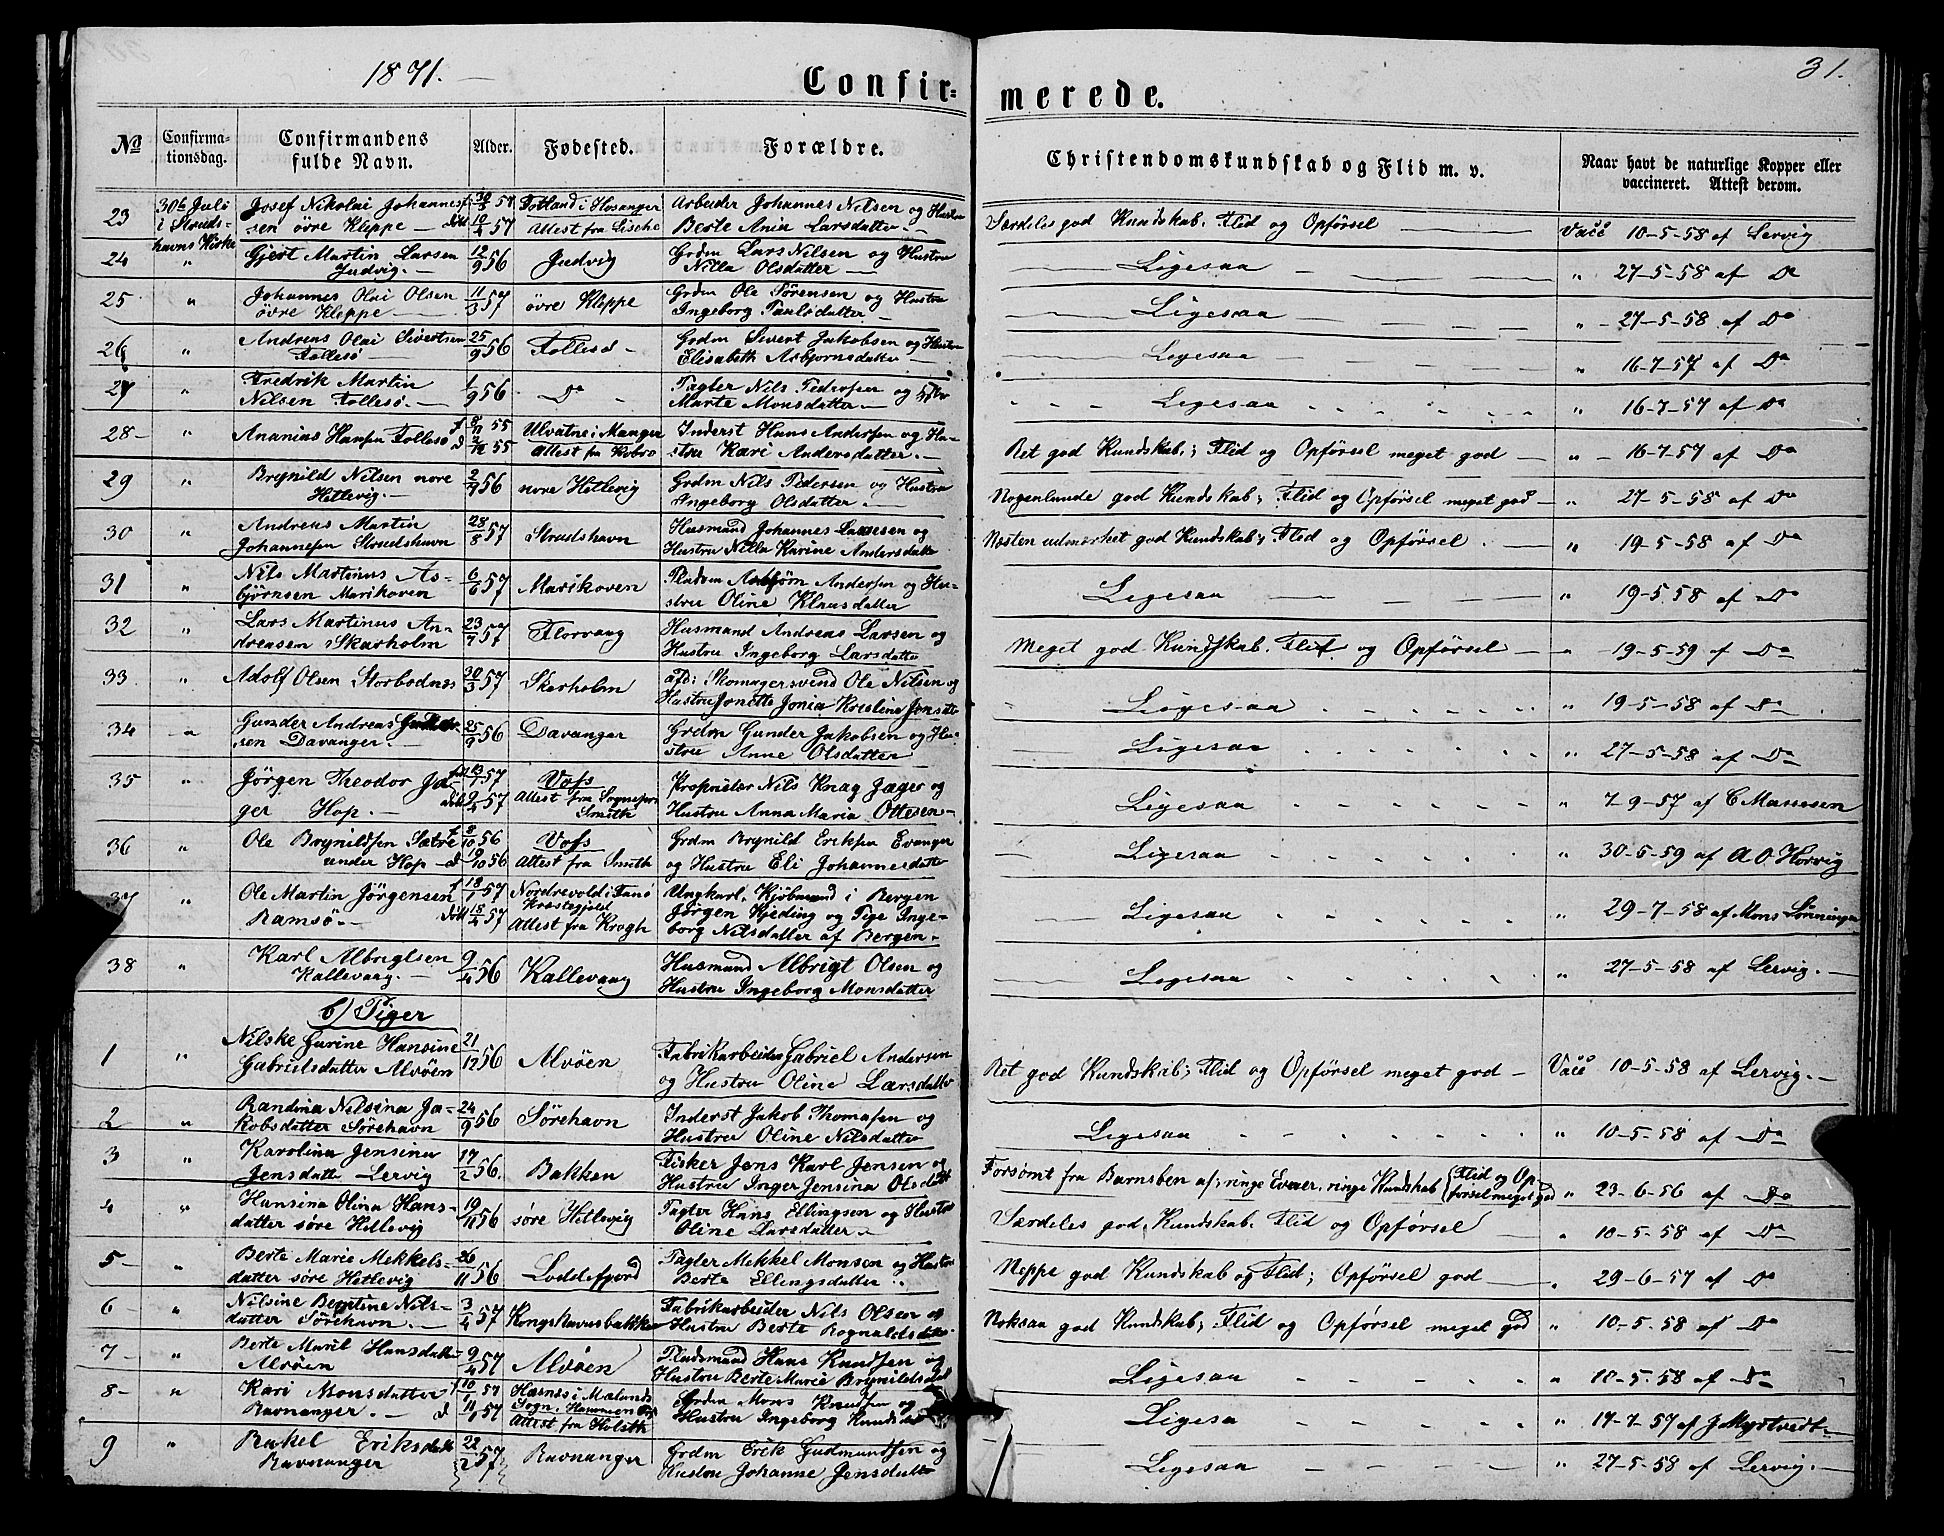 1871.
31.
Confirmerede.
№ Confirmationsdag. Confirmandens fulde Navn. Alder. Fødested. Forældre. Christendomskundskab og Flid m. v. Naar havt de naturlige Kopper eller vaccineret. Attest derom.
23 30te Juli Josef Nikolai Johannes- f 57 i Hosanger Arbeider Johannes Nilsen og Hustru Særdeles god Kundskab, Flid og Opførsel Vacc 10-5-58 af Lervig
i Strudshavns Kirke sen övre Kleppe döbt 57 Attest fra Berte Ania Larsdatter
24 " Gjert Martin Larsen 12/9 56 Judvig Grdm Lars Nilsen og Hustru Ligesaa " 27-5-58 af Do
Judvig. Nilla Olsdatter
25 " Johannes Olai Olsen 11/3 57 övre Kleppe Grdm Ole Sørensen og Hustru Ligesaa " 27-5-58 af Do
övre Kleppe Ingeborg Paulsdatter
26 " Andreas Olai Sivertsen 25/9 56 Follesö Grdm Sivert Jakobsen og Hustru Ligesaa " 16-7-57 af Do
Follesö Elisabeth Asbjørnsdatter
27 " Fredrik Martin 1/9 56 Do Pagter Nils Pedersen og Ligesaa " 16-7-57 af Do
Nilsen Follesö. Marte Monsdatter
28 " Ananias Hansen Follesö f 55 Ulvatne i Manger Inderst Hans Andersen og Hu- Ret god Kundskab; Flid og Opførsel meget god " 16-7-57 af Do
d 55 Attest fra stru Kari Andersdatter.
29 " Brynild Nilsen nore 2/9 56 nore Hetlevig Grdm Nils Pedersen og Hustru Nogenlunde god Kundskab; Flid og Opførsel meget god " 27-5-58 af Do
Hetlevig. Ingeborg Olsdatter
30 " Andreas Martin 28/5 57 Strudshavn Husmand Johannes Larsen og Næsten udmærket god Kundskab; Flid og Opførsel " 19-5-58 af Do
Johannesen Strudshavn Hustru Nilla Karine Andersdatter
31 " Nils Martinus As- 6/6 57 Marikoven Pladsm Asbjörn Andersen og Hu- Ligesaa " 19-5-58 af Do
björnsen Marikoven stru Oline Klausdatter
32 " Lars Martinus An- 23/7 57 Florvaag Husmand Andreas Larsen og Meget god Kundskab, Flid og Opførsel " 19-5-59 af Do
dreasen Skarholm Hustru Ingeborg Larsdatter
33 " Adolf Olsen Storbodnes 57 Skarholm afd: Skomagersvend Ole Nilsen og Ligesaa " 19-5-58 af Do
Hustru Jonette Jonia Kristine Jonsdtr
34 " Gunder Andreas Gunder- 25/9 56 Davanger Grdm Gunder Jakobsen og Hu- Ligesaa " 27-5-58 af Do
sen Davanger. stru Anne Olsdatter
35 " Jörgen Theodor Jæ- 57 Voss Proprietær Nils Knag Jæger og Ligesaa " 7-9-57 af C Massesen
ger Hop. döbt 9/4 57 Attest fra Sognepr. Smith Hustru Anna Maria Ottesen
36 " Ole Brynildsen Sætre f 8/10 56 Voss Grdm Brynild Eriksen Evanger Ligesaa " 30-5-59 af A O Horvig
under Hop d 56 Attest fra Smith og Hustru Eli Johannesdatter
37 " Ole Martin Jörgensen f 18/1 57 Nordrevold i Fanö Præstegjeld Ungkarl, Kjöbmand i Bergen Ligesaa " 29-7-58 af Mons Lönningen
Ramsö döbt 15/4 57 Attest fra Krogh Jörgen Kjeding og Pige Inge-
borg Nilsdatter af Bergen
38 " Karl Albrigtsen 9/4 56 Kallevaag Husmand Albrigt Olsen og Ligesaa " 27-5-58 af Lervig.
Kallevaag. Hustru Ingeborg Monsdatter
b) Piger
1 " Nilske Gurine Hansine 21/12 56 Alvöen Fabrikarbeider Gabriel Andersen Ret god Kundskab; Flid og Opførsel meget god Vacc 10-5-58 af Lervig.
Gabrielsdatter Alvöen og Hustru Oline Larsdatter
2 " Randina Nilsina Ja- 24/9 56 Sörehavn Inderst Jakob Thomasen og Ligesaa " 10-5-58 af Do
kobsdatter Sörehavn Hustru Oline Nilsdatter
3 " Karolina Jensina 17/2 56. Bakken Fisker Jens Karl Jensen og Forsömt fra Barnsben af; ringe Evner, ringe Kundskab (Flid og Op- " 23-6-56 af Do
Jensdatter Lervig Hustru Inger Jensina Olsdatt förselmeget god
4 " Hansina Olina Hans- 19/11 56 søre Hetlevig Pagter Hans Ellingsen og Hustru Særdeles god Kundskab, Flid og Opførsel " 10-5-58 af Do
datter søre Hetlevig Oline Larsdatter
5 " Berte Marie Mekkels- 26/11 56 Loddefjord Pagter Mekkel Monsen og Hustru Neppe god Kundskab og Flid; Opførsel god " 29-6-57 af Do
datter søre Hetlevig Berte Ellingsdatter
6 " Nilsine Berntine Nils- 3/4 57 Kongshavnsbakken Fabrikarbeider Nils Olsen og Noksaa god Kundskab; Flid og Opførsel meget god " 10-5-58 af Do
datter Sörehavn. Hustru Berte Rognaldsdatter
7 " Berte Marie Hansdatter 9/4 57 Alvöen Pladsmand Hans Knudsen og Ligesaa " 10-5-58 af Do
Alvöen Hustru Berte Marie Brynildsdatt
8 " Kari Monsdatter f 57 Grdm Mons Knudsen og Ligesaa " 17-7-57 af J Myrtvedt
Ravnanger. d 57 Attest fra Hustru Ingeborg Knudsdatter
9 " Rakel Eriksdatt 22/2 57 Ravnanger Grdm Erik Gudmundsen og Ligesaa " 27-5-58 af Lervig.
Ravnanger Hustru Johanne Jensdatter